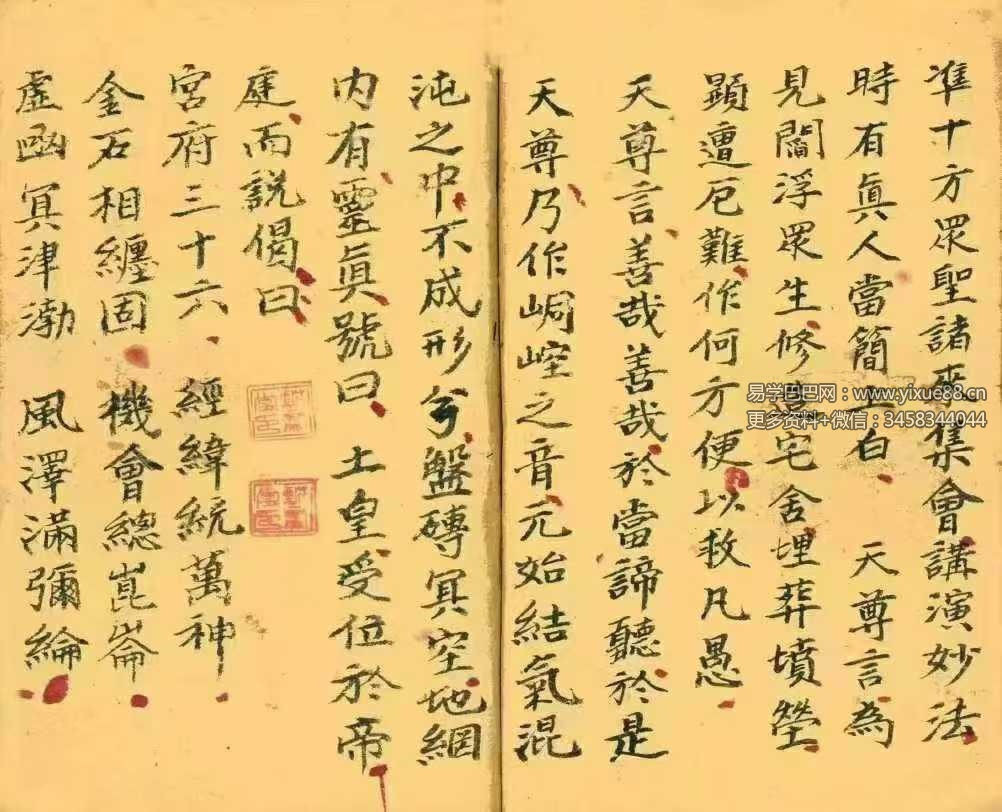 準十方眾聖諸來集會講演妙法
時有眞人當簡上白 天尊言為
見閻浮眾生修造宅舍埋葬墳塋
顯遭厄難作何方便以救凡愚
天尊言善哉善哉於當諦聽於是
天尊乃作峒崆之音元始結氣混
沌之中不成形兮盤磚冥空地網
内有靈眞號曰 土皇受位於帝
庭而說偈曰
宮府三十六 經緯統萬神
金石相纏固 機會總崑崙
虛凾冥津渤 風澤滿彌綸
易学巴巴网：www.yixue88.cn
更多资料+微信：3458344044